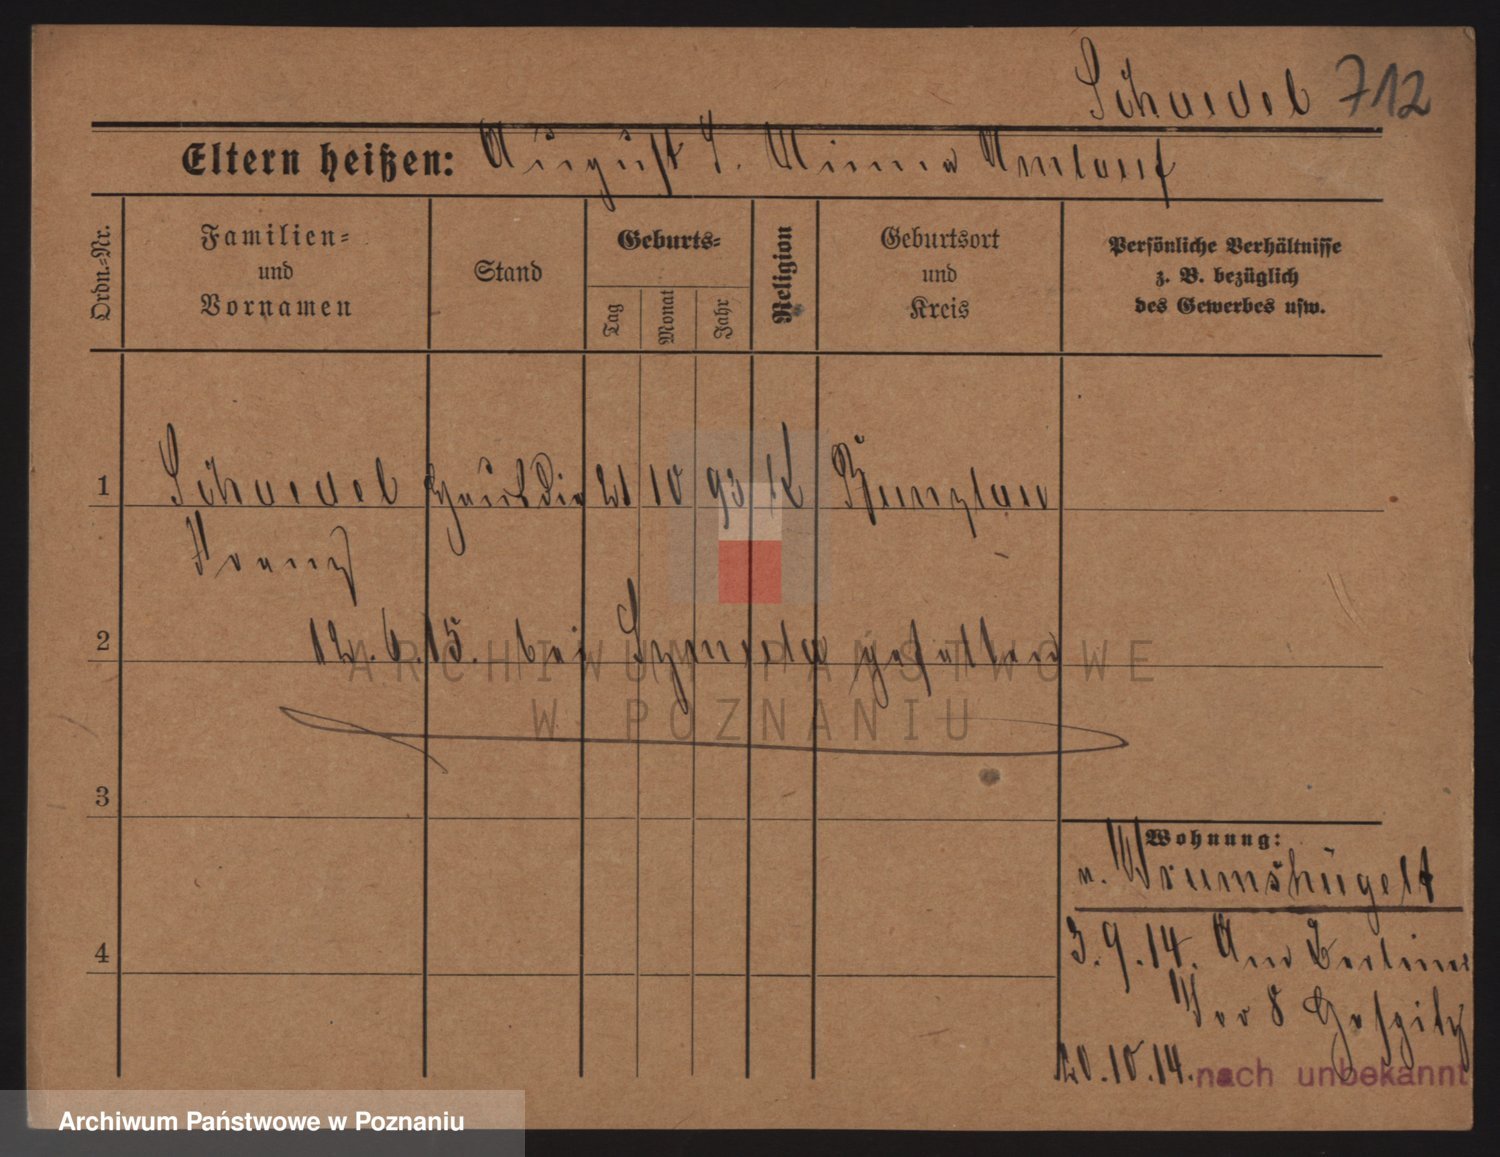 Schoedel 712
Eltern heißen: August & Minna
Ordn.-Nr.
Familien- und Vornamen
Stand
Geburts-
Tag
Monat
Jahr
Religion
Geburtsort und Kreis
Persönliche Verhältnisse z. B. bezüglich des Gewerbes usw.
1 Schoedel Hausdie 21 10 93 K Bunzlau
Franz
2 12.6.15. bei gefallen
3
Wohnung:
n. Wrumshügelt
3.9.14. Am Berliner
4 Tor 8 Hospitz
20.10.14. nach unbekannt
ARCHIWUM PAŃSTWOWE
W POZNANIU
Archiwum Państwowe w Poznaniu